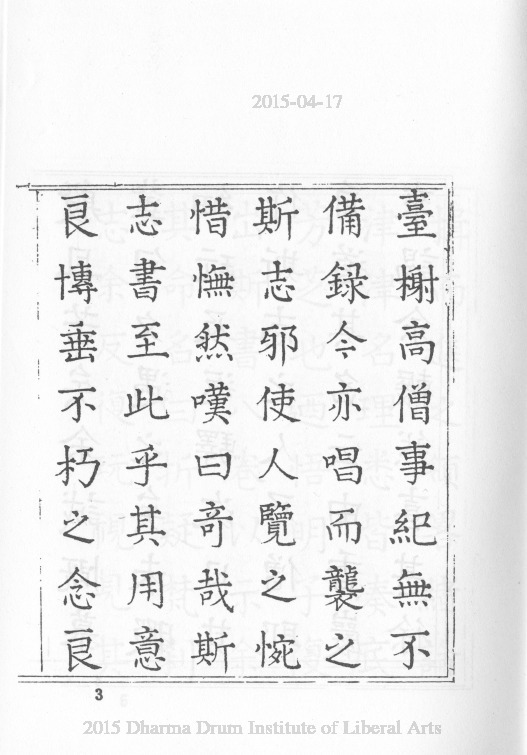 2015-04-17
臺榭高僧事紀無不
備録今亦唱而襲之
斯志邪使人覽之惋
惜憮然嘆曰奇哉斯
志書至此乎其用意
良博垂不朽之念良
3
2015 Dharma Drum Institute of Liberal Arts